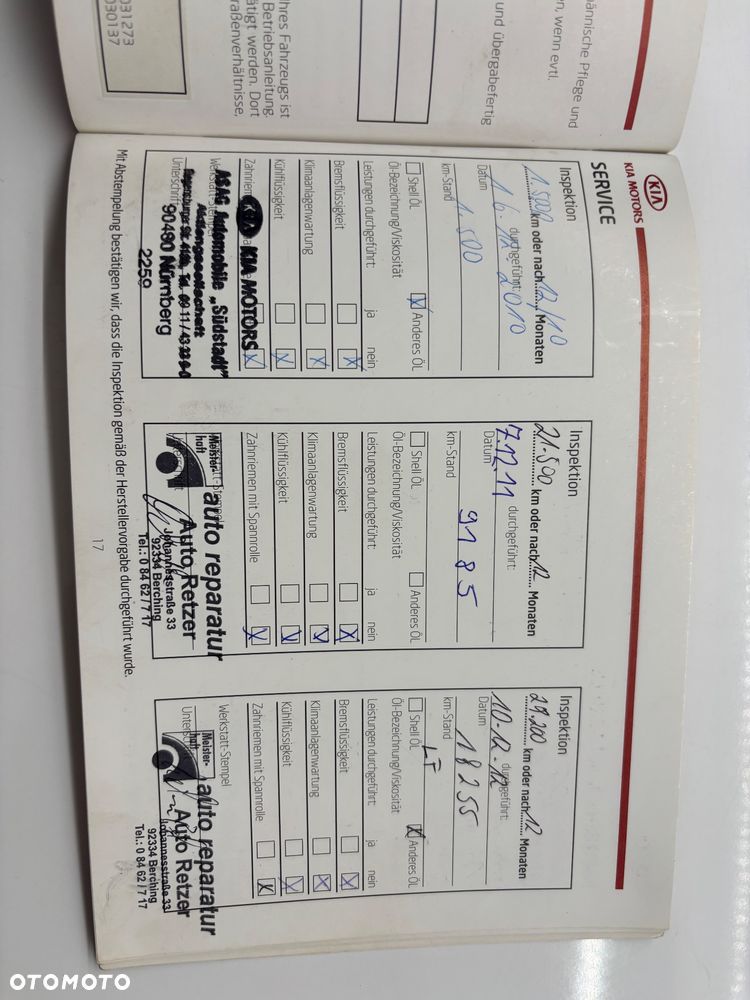 031273
030137
hres Fahrzeugs ist
Betriebsanleitung.
ätigt werden. Dort
raßenverhältnisse,
männische Pflege und
n, wenn evtl.
und übergabefertig
KIA
KIA MOTORS
SERVICE
Inspektion
1.500 km oder nach 12/10 Monaten
durchgeführt:
16.12.2010
Datum
1.500
km-Stand
Shell Öl
Anderes Öl
Öl-Bezeichnung/Viskosität
Leistungen durchgeführt: ja nein
Bremsflüssigkeit
Klimaanlagenwartung
Kühlflüssigkeit
Zahnriemen
KIA MOTORS
ASAG Automobile „Südstadt"
Aktiengesellschaft
90480 Nürnberg
Unterschrift
2259
Inspektion
21.500 km oder nach 12 Monaten
durchgeführt:
7.12.11
Datum
9185
km-Stand
Shell Öl
Anderes Öl
Öl-Bezeichnung/Viskosität
Leistungen durchgeführt: ja nein
Bremsflüssigkeit
Klimaanlagenwartung
Kühlflüssigkeit
Zahnriemen mit Spannrolle
Meister-
haft
auto reparatur
Auto Retzer
Johannesstraße 33
92334 Berching
Tel.: 0 84 62 / 7 17
Inspektion
29.200 km oder nach 12 Monaten
durchgeführt:
10.12.12
Datum
18255
km-Stand
LT
Shell Öl
Anderes Öl
Öl-Bezeichnung/Viskosität
Leistungen durchgeführt: ja nein
Bremsflüssigkeit
Klimaanlagenwartung
Kühlflüssigkeit
Zahnriemen mit Spannrolle
Werkstatt-Stempel
Meister-
haft
auto reparatur
Auto Retzer
Johannesstraße 33
92334 Berching
Tel.: 0 84 62 / 7 17
Mit Abstempelung bestätigen wir, dass die Inspektion gemäß der Herstellervorgabe durchgeführt wurde.
17
OTOMOTO